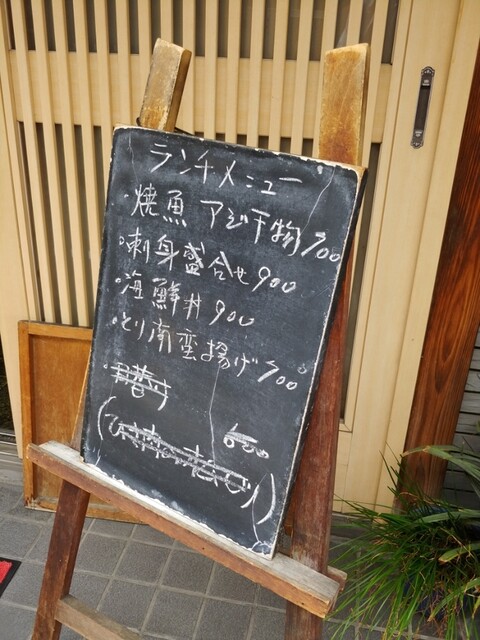 ランチメニュー
・焼魚 アジ干物 700
・刺身盛合せ 900
・海鮮丼 900
・とり南蛮揚げ 700
600